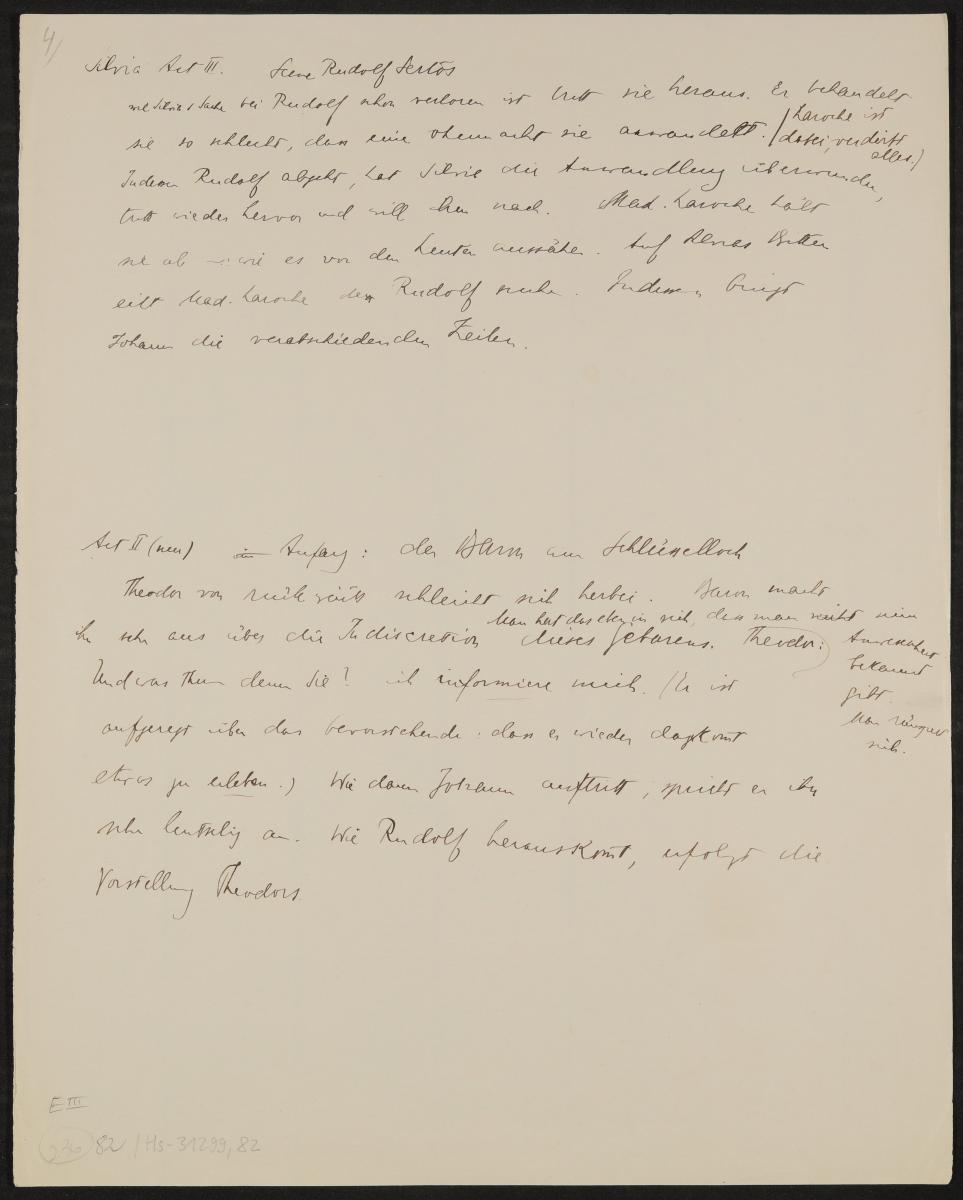 4)
Silvia Act III. Scene Rudolf Sertos
wie Silvia's Sache bei Rudolf schon verloren ist tritt sie heraus. Er behandelt
sie so schlecht, dass eine Ohnmacht sie anwandelt. (Laroche ist
dabei, verdirbt
alles.)
Indem Rudolf abgeht, hat Silvia die Anwandlung überwunden,
tritt wieder hervor und will ihm nach. Mad. Laroche hält
sie ab wie es vor den Leuten aussähe. Auf Silvias Bitten
eilt Mad. Laroche den Rudolf suchen. Indessen bringt
Johann die verabschiedenden Zeilen.
Act II (neu) Anfang: der Baron am Schlüsselloch
Theodor von rückwärts schleicht sich herbei. Baron macht
ihn sehr aus über die Indiscretion dieses Gebarens. Theodor:
Man hat das eben in sich, dass man nicht seine
Anwesenheit
bekannt
gibt.
Man räuspert
sich.
Und was thun denn Sie? ich informiere mich. (Er ist
aufgeregt über das bevorstehende: dass er wieder dazukomt
etwas zu erleben.) Wie dann Johann auftritt, spricht er ihn
sehr leutselig an. Wie Rudolf herauskomt, erfolgt die
Vorstellung Theodors.
E III
236 82 / Hs-31299,82